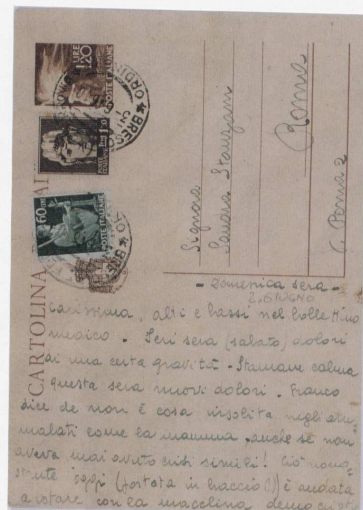 CARTOLINA
LIRE 1,20
POSTE ITALIANE
POSTE ITALIANE
60 CENT
POSTE ITALIANE
BRESC
ORDIN
Signora
Roma
- Domenica sera -
2. GIUGNO
Carissima, alti e bassi nel bollettino
medico. Ieri sera (sabato) dolori
di una certa gravità - Stamane calma
questa sera nuovi dolori. Franco
dice che non è cosa insolita negli altri
malati come la mamma, anche se non
aveva mai avuto crisi simili! Ciò nono
stante oggi (portata in braccio!) è andata
a votare con la macchina